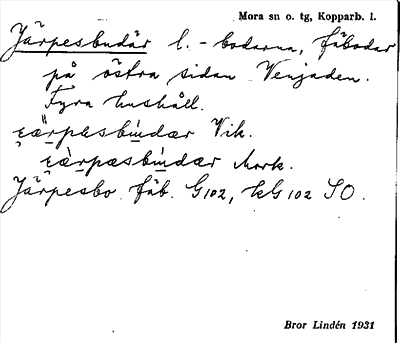 Mora sn o. tg, Kopparb. l.
Järpesbudär l. - bodarna, fäbodar
på östra sidan Venjaden.
Fyra hushåll.
Vik.
Mork.
Järpesbo fäb. G102, kG102 SO.
Bror Lindén 1931